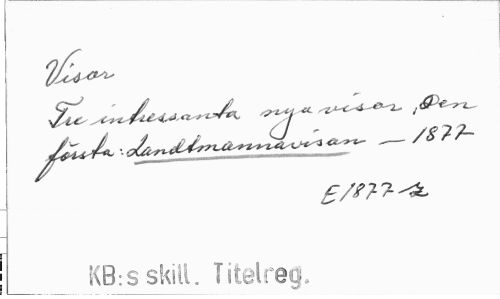 Visor
Tre intressanta nya visor, Den
första: Landtmannavisan — 1877
E 1877 z
KB:s skill. Titelreg.